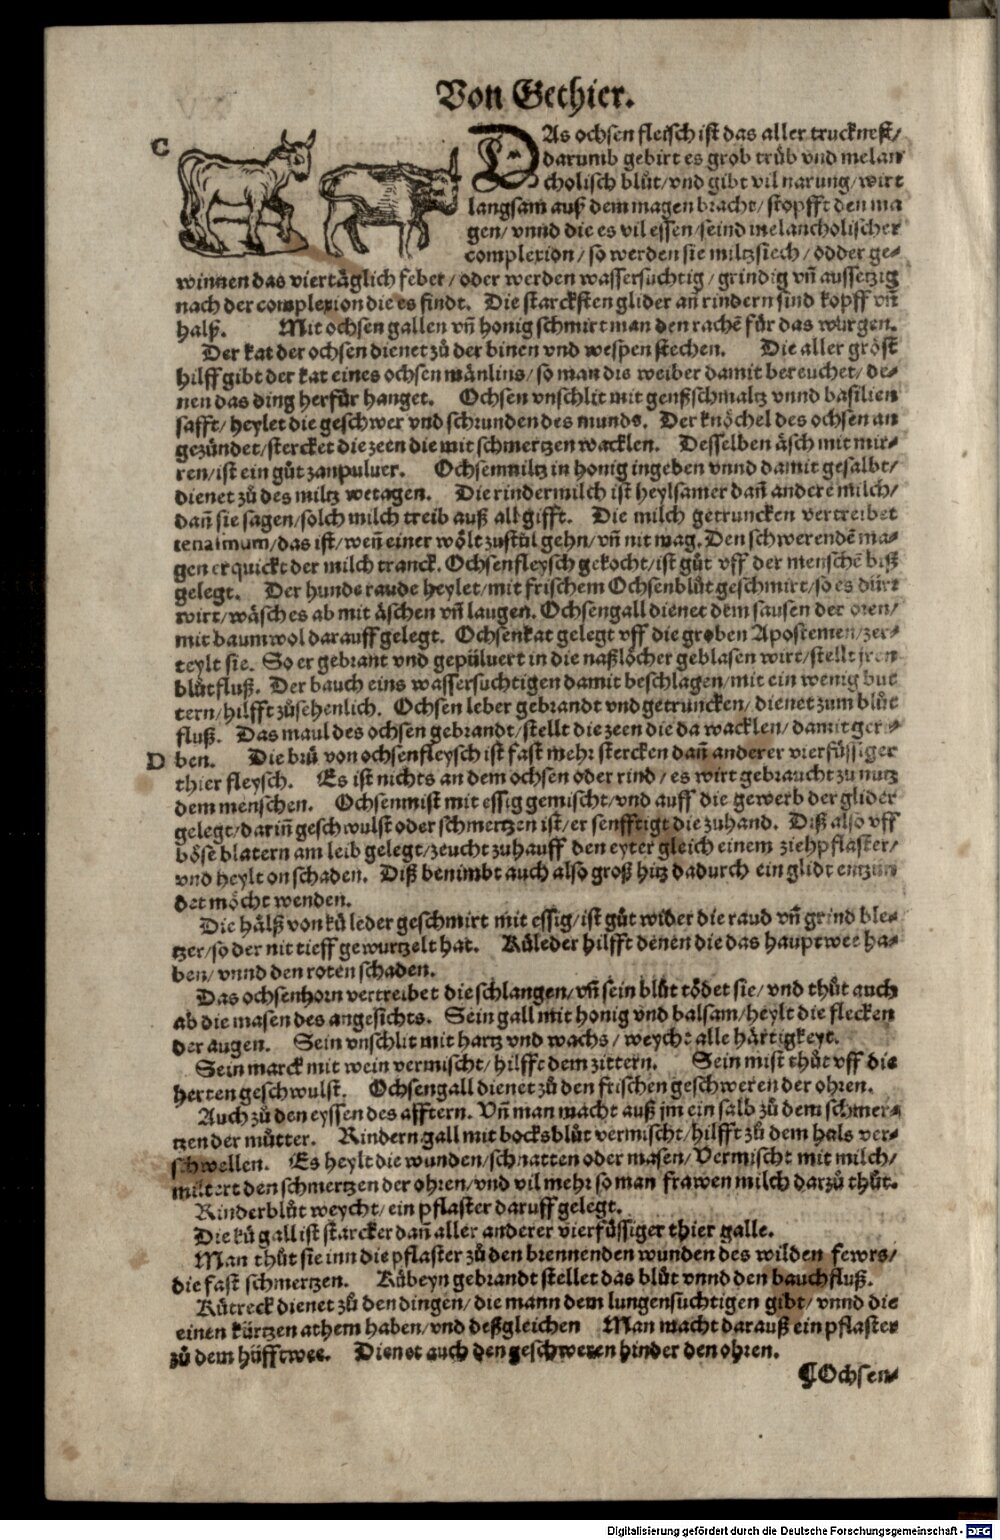 Von Gethier.
C
DAs ochsen fleisch ist das aller trucknest/
darumb gebirt es grob trüb vnd melan
cholisch blůt/vnd gibt vil narung/wirt
langsam auß dem magen bracht/stopfft den ma
gen/vnnd die es vil essen/seind melancholischer
complexion/so werden sie miltzsiech/odder ge-
winnen das viertäglich feber/oder werden wassersuchtig/grindig vñ aussetzig
nach der complexion die es findt. Die starcksten glider an rindern sind kopff vñ
halß. Mit ochsen gallen vñ honig schmirt man den rachē für das wurgen.
Der kat der ochsen dienet zů der binen vnd wespen stechen. Die aller gröst
hilff gibt der kat eines ochsen mänlins/so man die weiber damit bereuchet/de-
nen das ding herfür hanget. Ochsen vnschlit mit genßschmaltz vnnd basilien
safft/heylet die geschwer vnd schrunden des munds. Der knöchel des ochsen an
gezündet/stercket die zeen die mit schmertzen wacklen. Desselben äsch mit mir-
ren/ist ein gůt zanpuluer. Ochsenmiltz in honig ingeben vnnd damit gesalbt/
dienet zů des miltz wetagen. Die rindermilch ist heylsamer dañ andere milch/
dañ sie sagen/solch milch treib auß all gifft. Die milch getruncken vertreibet
tenasmum/das ist/weñ einer wölt zustůl gehn/vñ nit mag. Den schwerendē ma-
gen erquickt der milch tranck. Ochsenfleysch gekocht/ist gůt vff der menschē biß
gelegt. Der hunde raude heylet/mit frischem Ochsenblůt geschmirt/so es dürr
wirt/wäsch es ab mit äschen vñ laugen. Ochsengall dienet dem sausen der oren/
mit baumwol darauff gelegt. Ochsenkat gelegt vff die groben Apostemen/zer-
teylt sie. So er gebrant vnd gepüluert in die naßlöcher geblasen wirt/stellt jren
blůtfluß. Der bauch eins wassersuchtigen damit beschlagen/mit ein wenig but
tern/hilfft zůsehenlich. Ochsen leber gebrandt vnd getruncken/dienet zum blůt
fluß. Das maul des ochsen gebrandt/stellt die zeen die da wacklen/damit geri-
D ben. Die brü von ochsenfleysch ist fast mehr stercken dañ anderer vierfüssiger
thier fleysch. Es ist nichts an dem ochsen oder rind/es wirt gebraucht zu nutz
dem menschen. Ochsenmist mit essig gemischt/vnd auff die gewerb der glider
gelegt/dariñ geschwulst oder schmertzen ist/er senfftigt die zuhand. Diß also vff
böse blatern am leib gelegt/zeucht zuhauff den eyter gleich einem ziehpflaster/
vnd heylt on schaden. Diß benimbt auch also groß hitz dadurch ein glidt entzün
det möcht wenden.
Die hälß von kü leder geschmirt mit essig/ist gůt wider die raud vñ grind ble-
tzer/so der nit tieff gewurtzelt hat. Küleder hilfft denen die das hauptwee ha-
ben/vnnd den roten schaden.
Das ochsenhorn vertreibet die schlangen/vñ sein blůt tödet sie/vnd thůt auch
ab die masen des angesichts. Sein gall mit honig vnd balsam/heylt die flecken
der augen. Sein vnschlit mit hartz vnd wachs/weycht alle härtigkeyt.
Sein marck mit wein vermischt/hilfft dem zittern. Sein mist thůt vff die
herten geschwulst. Ochsengall dienet zů den frischen geschweren der ohren.
Auch zů den eyssen des afftern. Vñ man macht auß jm ein salb zů dem schmer-
tzen der můtter. Rindern gall mit bocksblůt vermischt/hilfft zů dem hals ver-
schwellen. Es heylt die wunden/schnatten oder masen/Vermischt mit milch/
miltert den schmertzen der ohren/vnd vil mehr so man frawen milch darzů thůt.
Rinderblůt weycht/ein pflaster daruff gelegt.
Die kü gall ist starcker dañ aller anderer vierfüssiger thier galle.
Man thůt sie inn die pflaster zů den brennenden wunden des wilden fewrs/
die fast schmertzen. Kübeyn gebrandt stellet das blůt vnnd den bauchfluß.
Kütreck dienet zů den dingen/die mann dem lungensuchtigen gibt/vnnd die
einen kürtzen athem haben/vnd deßgleichen Man macht darauß ein pflaster
zů dem hüfftwee. Dienet auch den geschweren hinder den ohren.
¶Ochsen-
Digitalisierung gefördert durch die Deutsche Forschungsgemeinschaft - DFG